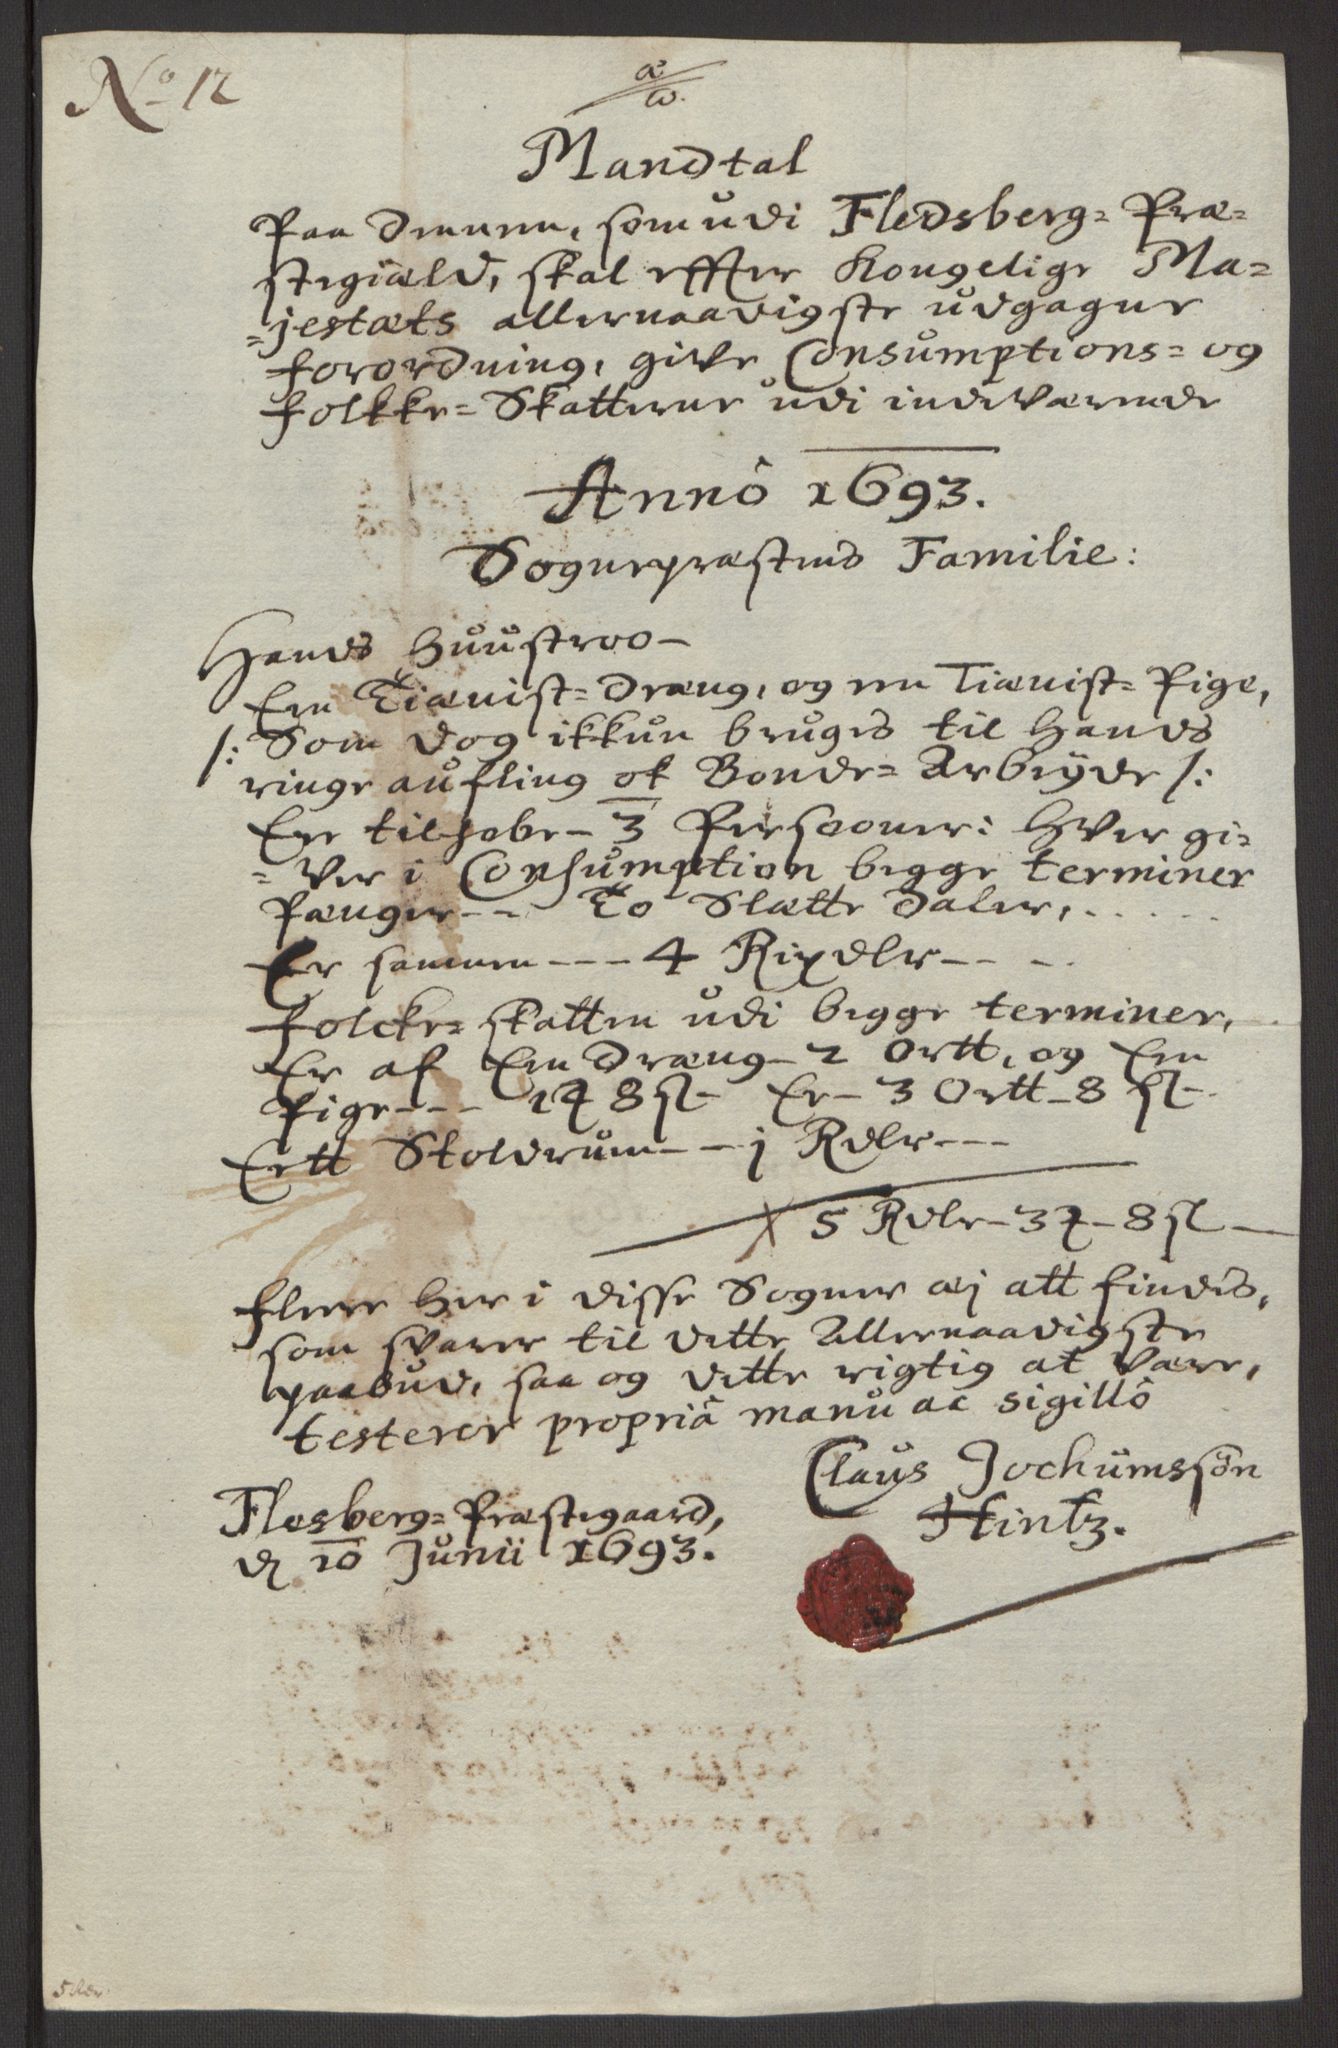 No 12
α/ω.
Mandtal
Paa dennem, som udi Flesberg= Præ=
stegiæld, skal effter Kongelige Ma=
=jestæts allernaadigste udgagne
forordning, give Consumptions= og
folkke= Skatterne udi indeværende
Anno 1693.
Sognepræstens Familie:
Hands Huustroo-
Een Tiænist= dræng, og een Tiænist= Pige,
/: Som dog ikkun bruges til hands
ringe aufling ok Bonde= Arbeyde /:
Ere tilhobe- 3 Persooner: hver gi=
=ver i Consumption begge terminer
Penger--- To Slætte daler, . . . . .
Er sammen --- 4 Rixdlr-- --
folcke= skatten udi begge terminer,
Er af Een dræng- 2 ortt, og Een
Pige--- 1 8 sl- Er- 3 Ortt- 8 sl-
Eett Stoldrum--- j Rdlr---
5 Rdlr- 3 - 8 sl-
fleere her i disse Sogner æj att findes,
som svarer til dette Allernaadigste
paabud, saa og dette rigtig at være,
testerer propriâ manu ac sigillô
Claus Jochumssøn
Hintz.
Flesberg= Præstegaard,
d 10 Junii 1693.